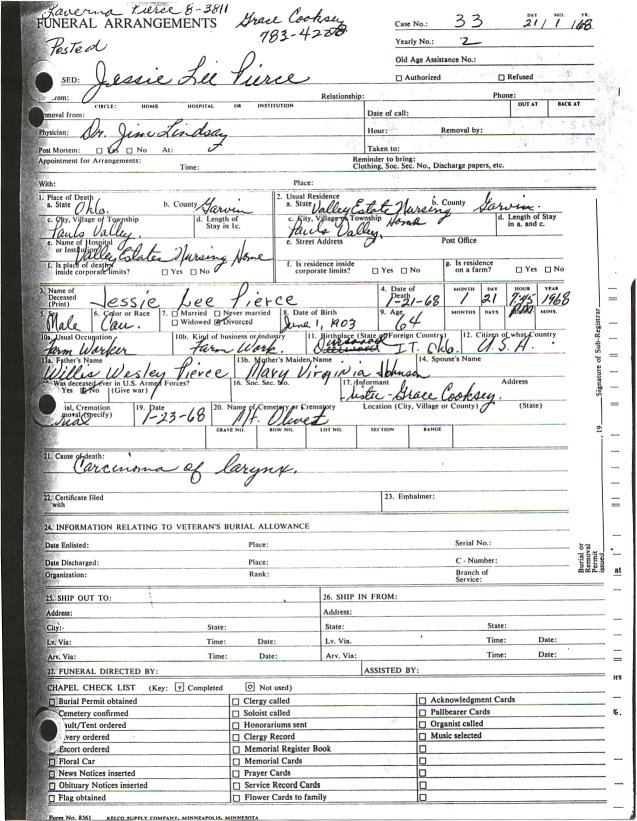 Laverna Pierce 8-3811
FUNERAL ARRANGEMENTS Grace Cooksey
783-4228
Case No.: 33 DAY MO. YR. 21/1/68
Posted
Yearly No.: 2
Old Age Assistance No.:
SED: Jessie Lee Pierce
☐ Authorized ☐ Refused
rom: Relationship: Phone:
CIRCLE: HOME HOSPITAL OR INSTITUTION OUT AT BACK AT
moval from: Date of call:
Physician: Dr. Jim Lindsay Hour: Removal by:
Post Mortem: ☐ Yes ☐ No At: Taken to:
Appointment for Arrangements: Time: Reminder to bring:
Clothing, Soc. Sec. No., Discharge papers, etc.
With: Place:
1. Place of Death
a. State Okla. b. County Garvin
2. Usual Residence
a. State Valley Estate Nursing Home b. County Garvin
c. City, Village of Township Pauls Valley d. Length of Stay in 1c.
c. City, Village of Township Pauls Valley d. Length of Stay in a. and c.
e. Name of Hospital or Institution Valley Estates Nursing Home
e. Street Address Post Office
f. Is place of death inside corporate limits? ☐ Yes ☐ No
f. Is residence inside corporate limits? ☐ Yes ☐ No
g. Is residence on a farm? ☐ Yes ☐ No
3. Name of Deceased (Print) Jessie Lee Pierce
4. Date of Death 1-21-68 MONTH 1 DAY 21 HOUR 7:45 YEAR 1968
5. Sex Male 6. Color or Race Cau. 7. ☐ Married ☐ Never married ☐ Widowed ☑ Divorced
8. Date of Birth June 1, 1903 9. Age 64 MONTHS DAYS HOURS MINS.
10a. Usual Occupation Farm Worker 10b. Kind of business or industry Farm Work.
11. Birthplace (State or Foreign Country) I.T. Okla. 12. Citizen of what Country U.S.A.
13a. Father's Name Willis Wesley Pierce 13b. Mother's Maiden Name Mary Virginia Johnson 14. Spouse's Name
15. Was deceased ever in U.S. Armed Forces? Yes No (Give war) 16. Soc. Sec. No. 17. Informant Sister - Grace Cooksey. Address
ial, Cremation moval (specify) 19. Date 1-23-68 20. Name of Cemetery or Crematory Mt. Olivet Location (City, Village or County) (State)
GRAVE NO. ROW NO. LOT NO. SECTION RANGE
21. Cause of death:
Carcinoma of larynx.
22. Certificate filed with 23. Embalmer:
24. INFORMATION RELATING TO VETERAN'S BURIAL ALLOWANCE
Date Enlisted: Place: Serial No.:
Date Discharged: Place: C - Number:
Organization: Rank: Branch of Service:
25. SHIP OUT TO: 26. SHIP IN FROM:
Address: Address:
City: State: State: State:
Lv. Via: Time: Date: Lv. Via. Time: Date:
Arv. Via: Time: Date: Arv. Via: Time: Date:
27. FUNERAL DIRECTED BY: ASSISTED BY:
CHAPEL CHECK LIST (Key: ☑ Completed ☐ Not used)
☐ Burial Permit obtained ☐ Clergy called ☐ Acknowledgment Cards
Cemetery confirmed ☐ Soloist called ☐ Pallbearer Cards
ault/Tent ordered ☐ Honorariums sent ☐ Organist called
very ordered ☐ Clergy Record ☐ Music selected
Escort ordered ☐ Memorial Register Book ☐
☐ Floral Car ☐ Memorial Cards ☐
☐ News Notices inserted ☐ Prayer Cards ☐
☐ Obituary Notices inserted ☐ Service Record Cards ☐
☐ Flag obtained ☐ Flower Cards to family ☐
Form No. 8361 KELCO SUPPLY COMPANY, MINNEAPOLIS, MINNESOTA
Signature of Sub-Registrar
19
Burial or Removal Permit issued
at